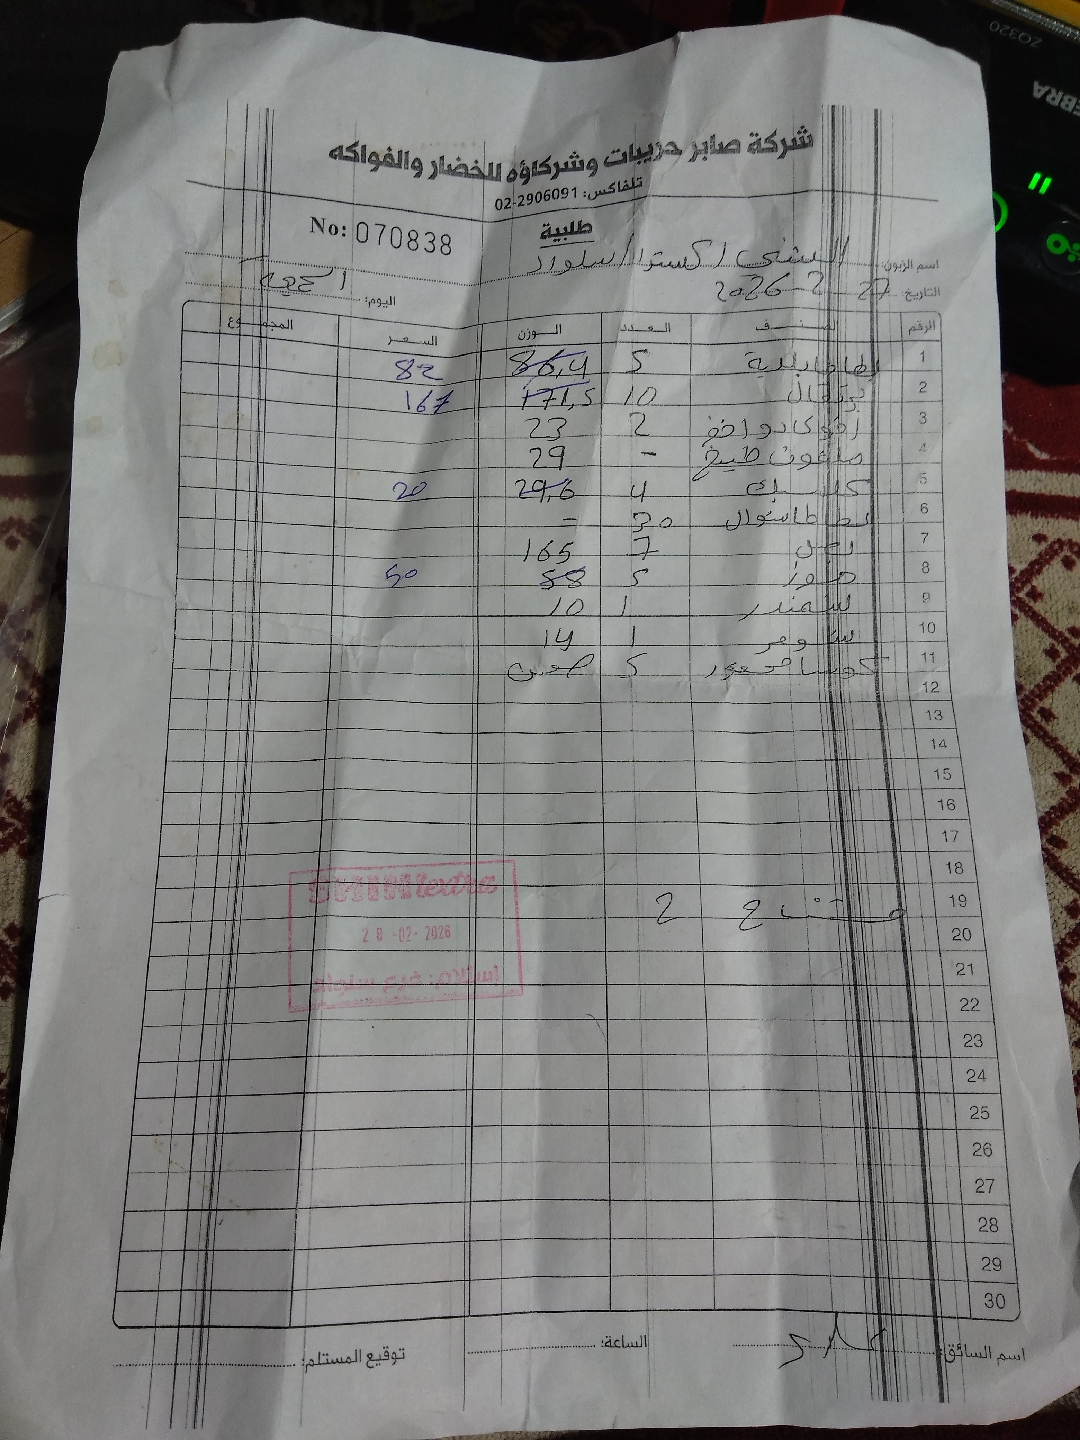 ZQ320
ZEBRA
شركة صابر حزيبات وشركاؤه للخضار والفواكه
تلفاكس: 02-2906091
No: 070838
طلبية
اسم الزبون: الشني اكسترا / سلواد
التاريخ: 27 2-2026 اليوم: الجمعة
الرقم الصنف العدد الوزن السعر المجموع
1 بطاطا بلدية 5 86,4 82
2 برتقال 10 171,5 167
3 افوكادو اخضر 2 23
4 ملفوف طبيخ - 29
5 4 29,6 20
6 بطاطا شوال 30 -
7 بصل 7 165
8 موز 5 58 50
9 شمندر 1 10
10 شومر 1 14
11 كوسا 5
12
13
14
15
16
17
18
19 2
20
21
22
23
24
25
26
27
28
29
30
SHINI extra
28 -02- 2026
استلام: فرع سلواد
اسم السائق: الساعة: توقيع المستلم: